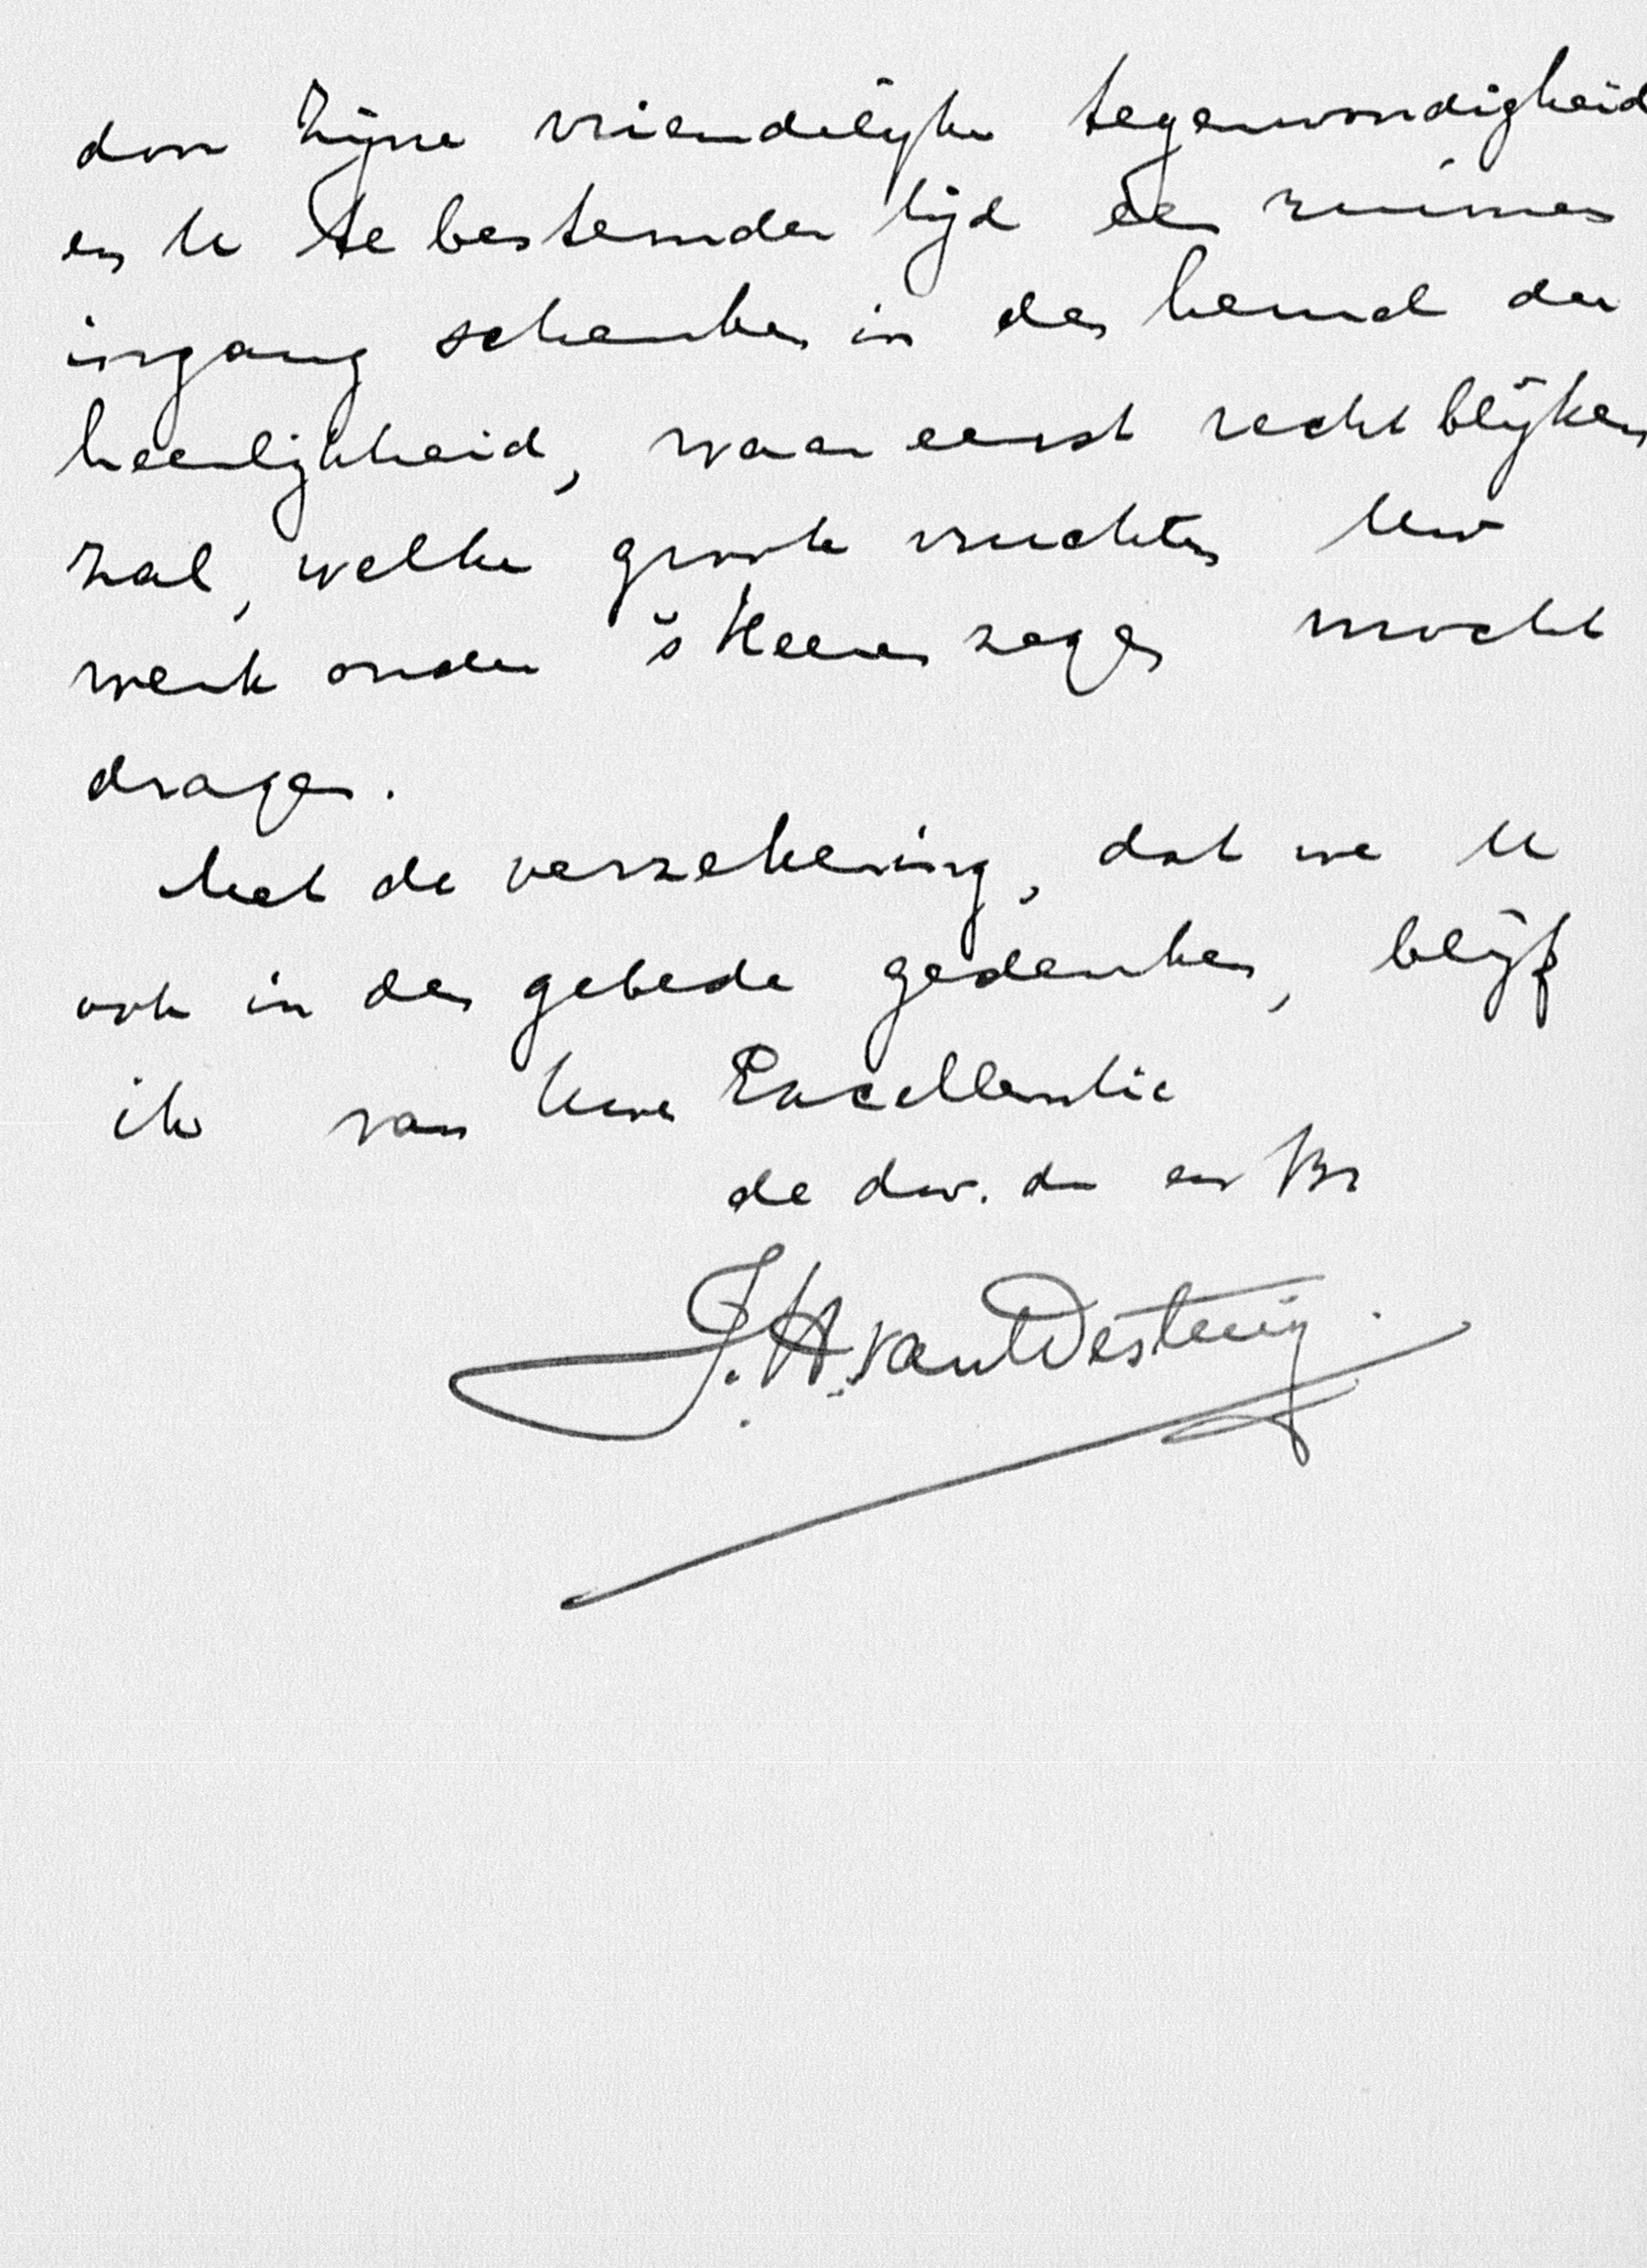 door Zijne vriendelijke tegenwoordigheid
en U te bestemder tijd een ruimen
ingang schenken in den hemel der
heerlijkheid, waar eerst recht blijken
zal, welke groote vruchten Uw
werk onder 's Heeren zegen mocht
dragen.
Met de verzekering, dat we U
ook in den gebede gedenken, blijf
ik van Uwe Excellentie
de dw. dr en Br
J. H. van Westerig